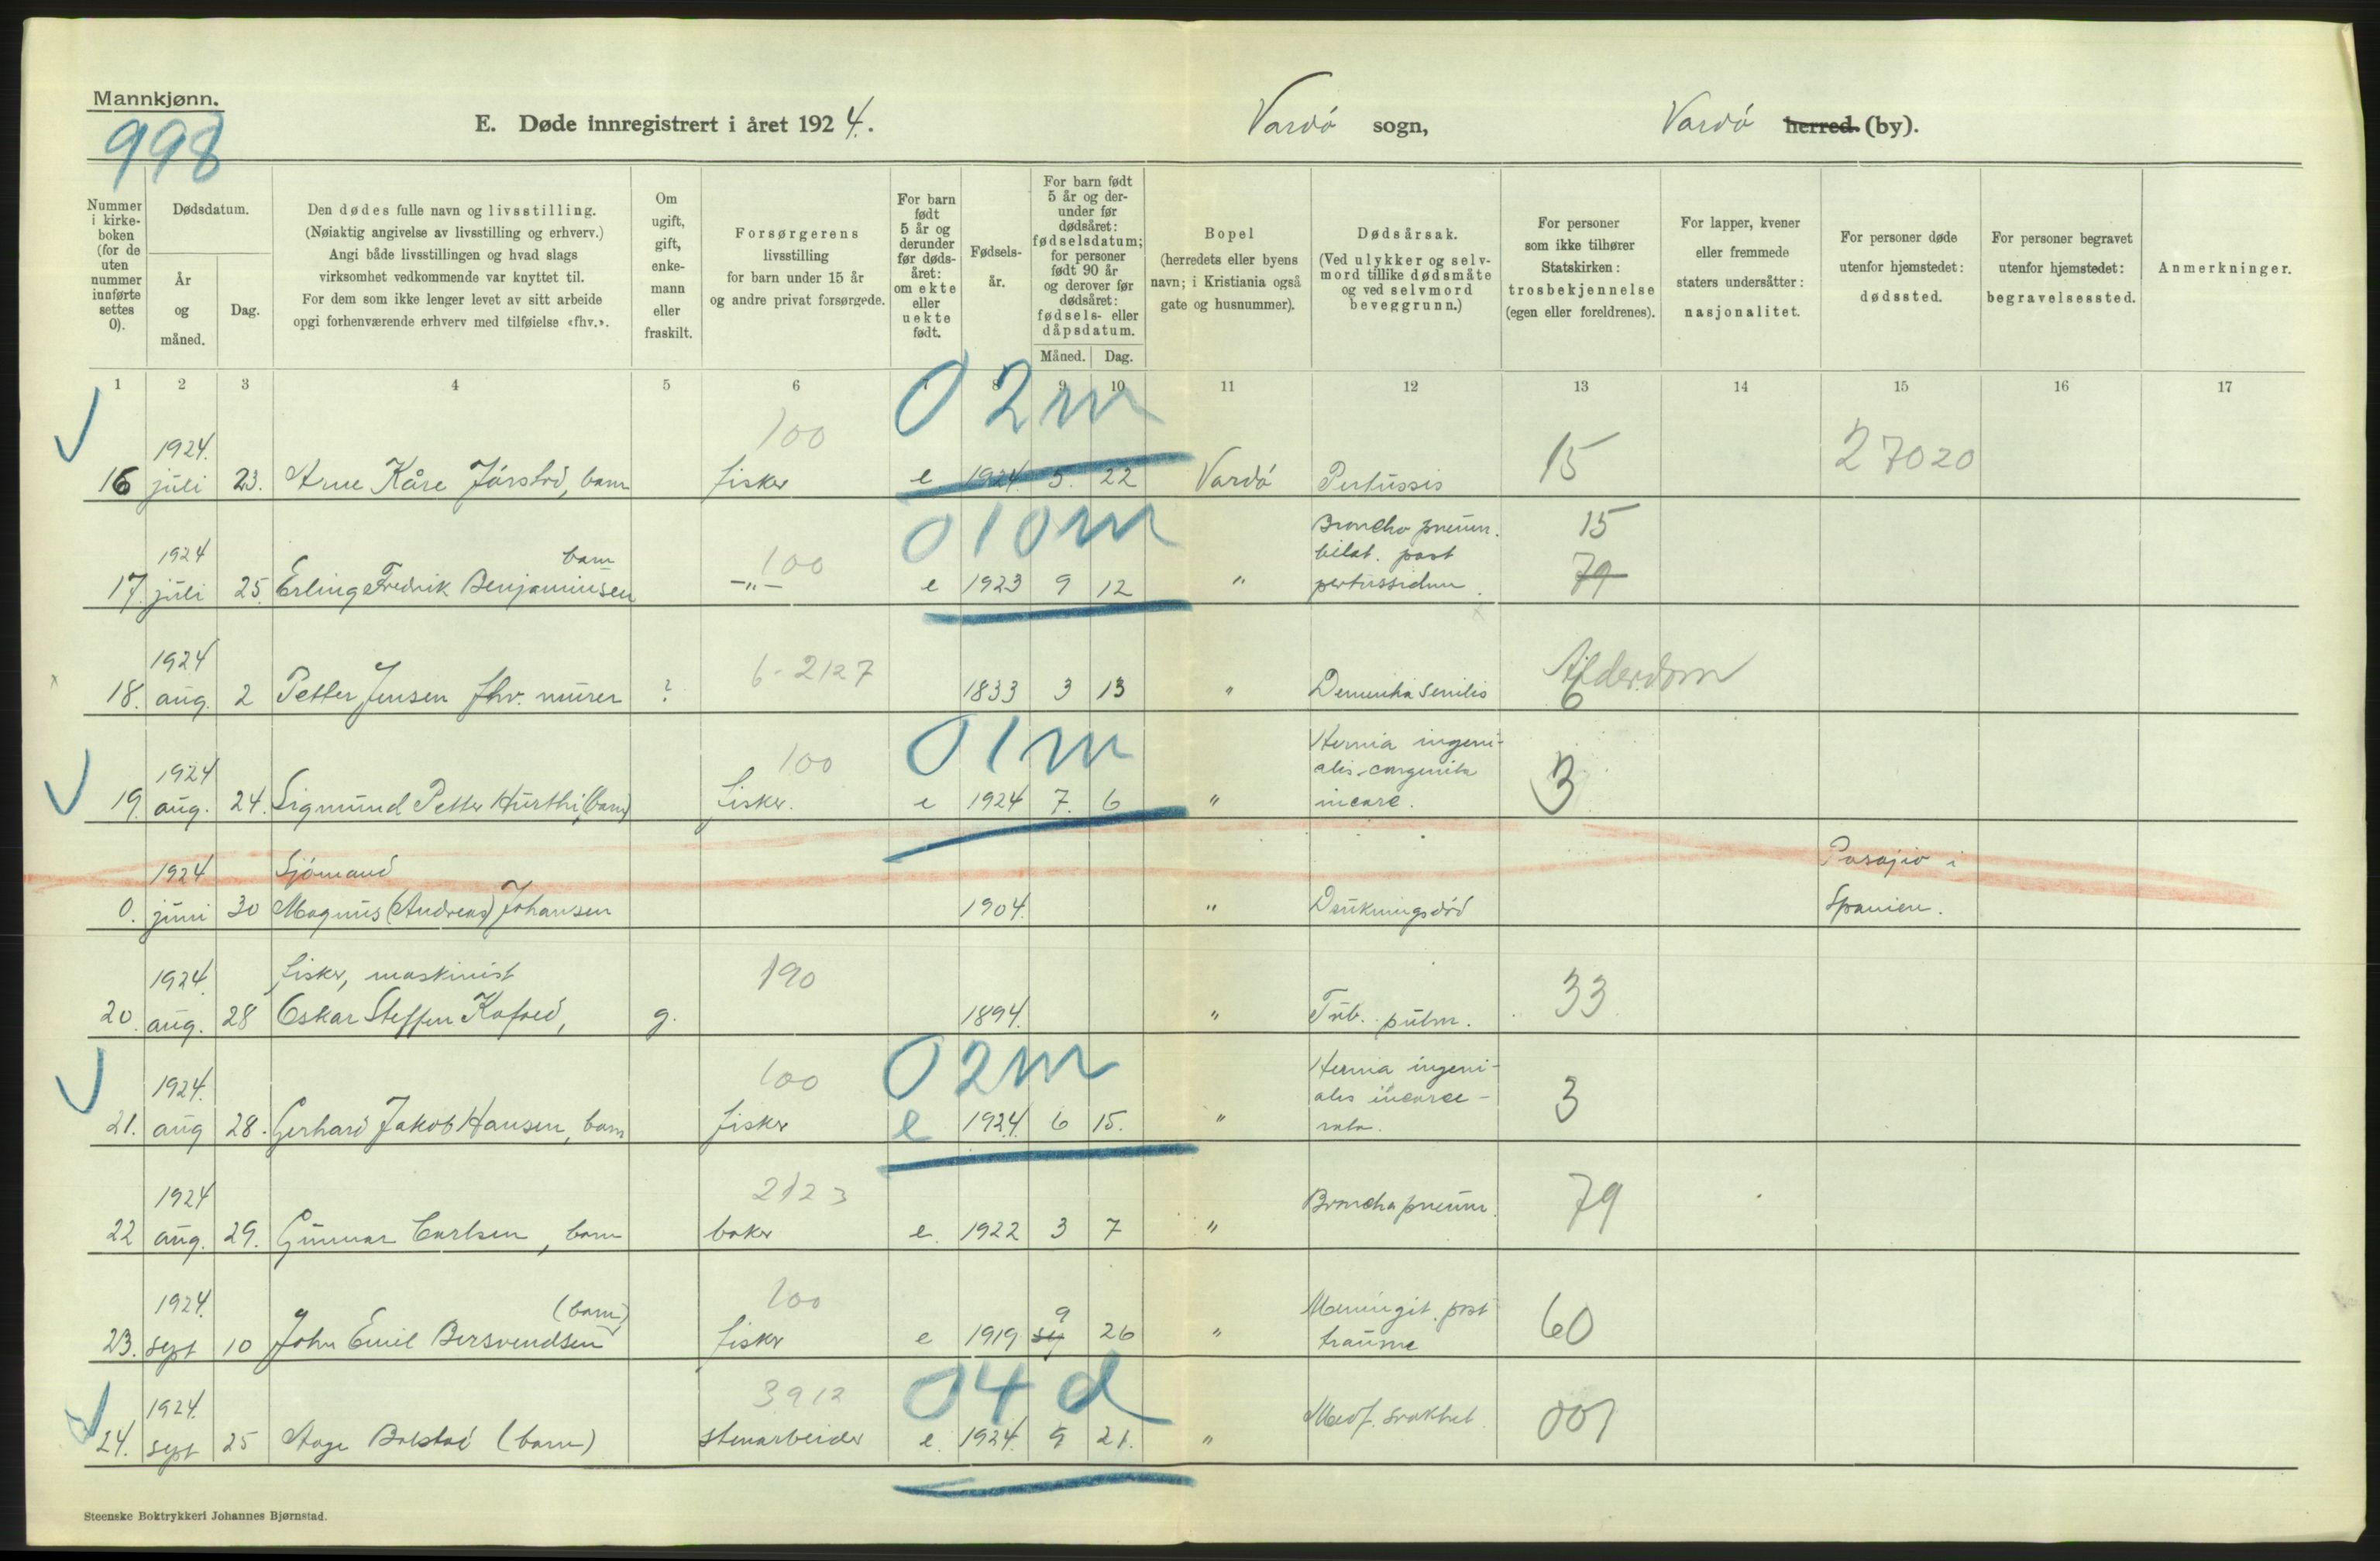 Mannkjønn.
998
E. Døde innregistrert i året 1924.
Vardö sogn,
Vardö herred (by).
Nummer i kirkeboken (for de uten nummer innførte settes 0).
Dødsdatum.
År og måned.
Dag.
Den dødes fulle navn og livsstilling.
(Nøiaktig angivelse av livsstilling og erhverv.)
Angi både livsstillingen og hvad slags
virksomhet vedkommende var knyttet til.
For dem som ikke lenger levet av sitt arbeide
opgi forhenværende erhverv med tilføielse «fhv.».
Om ugift, gift, enkemann eller fraskilt.
Forsørgerens
livsstilling
for barn under 15 år
og andre privat forsørgede.
For barn født 5 år og derunder før dødsåret: om ekte eller uekte født.
Fødselsår.
For barn født 5 år og derunder før dødsåret: fødselsdatum; for personer født 90 år og derover før dødsåret: fødsels- eller dåpsdatum.
Måned. Dag.
Bopel
(herredets eller byens
navn; i Kristiania også
gate og husnummer).
Dødsårsak.
(Ved ulykker og selvmord tillike dødsmåte og ved selvmord beveggrunn.)
For personer
som ikke tilhører
Statskirken:
trosbekjennelse
(egen eller foreldrenes).
For lapper, kvener
eller fremmede
staters undersåtter:
nasjonalitet.
For personer døde
utenfor hjemstedet:
dødssted.
For personer begravet
utenfor hjemstedet:
begravelsessted.
Anmerkninger.
1 2 3 4 5 6 7 8 9 10 11 12 13 14 15 16 17
1924. 100 02m
16 juli 23. Arne Kåre Jörstad, barn fisker e 1924. 5. 22 Vardö Pertussis 15 27020
1924 barn 100 010m Broncho pneum. bilat. post 15
17. juli 25. Erling Fredrik Benjaminsen —"— e 1923 9 12 " pertussidum. 79
1924 6-2127
18. aug. 2 Petter Jensen fhv. murer ? 1833 3 13 " Dementia senilis Alderdom 6
1924 100 01m Hernia ingeni-
alis congenita
19. aug. 24. Sigmund Petter Hurthi, (barn) fisker. e 1924 7. 6 " incarc. 3
1924 Sjömand Pasajio i
0. juni 30 Magnus (Andreas) Johansen 1904. " Drukningsdöd Spanien.
1924. fisker, maskinist 190
20. aug. 28 Oskar Steffen Kofoed, g. 1894. " Tub. pulm. 33
1924. 100 02m Hernia ingeni-
alis incarce-
21. aug 28. Gerhard Jakob Hansen, barn fisker e 1924. 6 15. " rata. 3
1924 2123
22 aug. 29. Gunnar Carlsen, barn baker e. 1922 3 7 " Broncho pneum. 79
1924. (barn) 100 9 Meningit. post
23. sept 10 John Emil Bersvendsen fisker e 1919 26 " traume 60
1924. 3912 04d
24. sept 25 Aage Bolstad (barn) stenarbeider e. 1924. 9 21. " Medf. svakhet. 001
Steenske Boktrykkeri Johannes Bjørnstad.